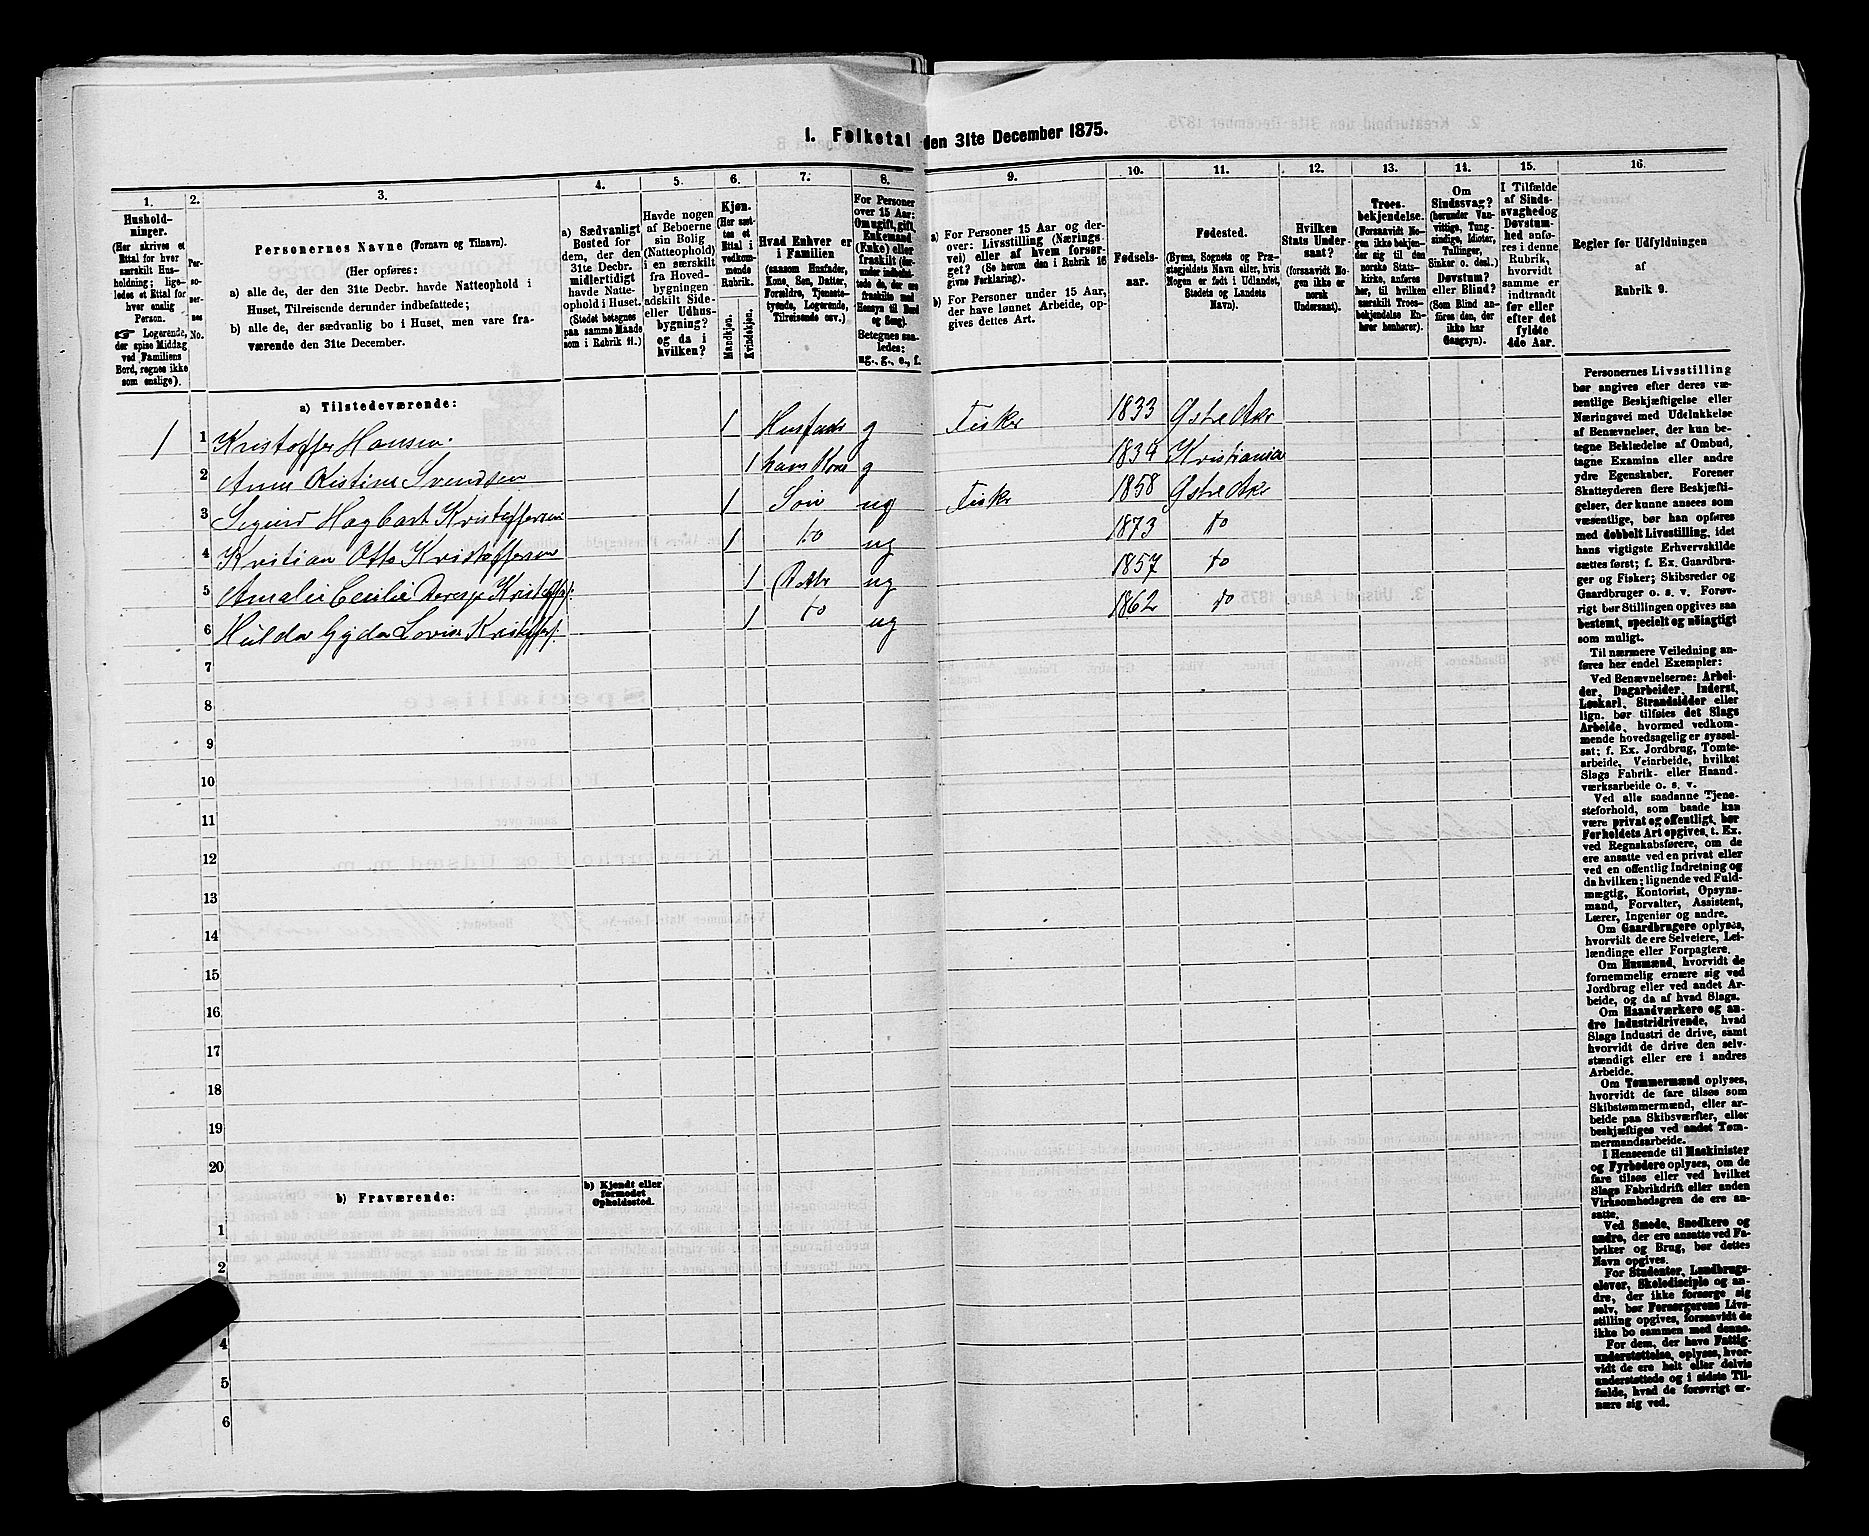 1. Folketal den 31te December 1875.
1. 2. 3. 4. 5. 6. 7. 8. 9. 10. 11. 12. 13. 14. 15. 16.
Hushold-
ninger.
(Her skrives et
Ettal for hver
særskilt Hus-
holdning; lige-
ledes et Ettal for
hver enslig
Person.
☞ Logerende,
der spise Middag
ved Familiens
Bord, regnes ikke
som enslige).
Per-
so-
ner-
nes
No.
Personernes Navne (Fornavn og Tilnavn).
(Her opføres:
a) alle de, der den 31te Decbr. havde Natteophold i
Huset, Tilreisende derunder indbefattede;
b) alle de, der sædvanlig bo i Huset, men vare fra-
værende den 31te December.
a) Sædvanligt
Bosted for
dem, der den
31te Decbr.
midlertidigt
havde Natte-
ophold i Huset.
(Stedet betegnes
paa samme Maade
som i Rubrik 11.)
Havde nogen
af Beboerne
sin Bolig
(Natteophold)
i en særskilt
fra Hoved-
bygningen
adskilt Side-
eller Udhus-
bygning?
og da i
hvilken?
Kjøn.
(Her sæt-
tes et
Ettal i
vedkom-
mende
Rubrik.
Mandkjøn.
Kvindekjøn.
Hvad Enhver er
i Familien
(saasom Husfader,
Kone, Søn, Datter,
Forældre, Tjeneste-
tyende, Logerende,
Tilreisende osv.)
For Personer
over 15 Aar:
Om ugift, gift,
Enkemand
(Enke) eller
fraskilt (der-
under indbefat-
tede de, der ere
fraskilte med
Hensyn til Bord
og Seng).
Betegnes saa-
ledes:
ug., g., e., f.
a) For Personer 15 Aar og der-
over: Livsstilling (Nærings-
vei) eller af hvem forsør-
get? (Se herom den i Rubrik 16
givne Forklaring).
b) For Personer under 15 Aar,
der have lønnet Arbeide, op-
gives dettes Art.
Fødsels-
aar.
Fødested.
(Byens, Sognets og Præ-
stegjeldets Navn eller, hvis
Nogen er født i Udlandet,
Stedets og Landets
Navn).
Hvilken
Stats Under-
saat?
(forsaavidt No-
gen ikke er
norsk
Undersaat).
Troes-
bekjendelse.
(Forsaavidt No-
gen ikke bekjen-
der sig til den
norske Stats-
kirke, anføres
her, til hvilken
særskilt Troes-
bekjendelse En-
hver henhører).
Om
Sindssvag?
(herunder Van-
vittige, Tung-
sindige, Idioter,
Tullinger,
Sinker o. desl.)
Døvstum?
eller Blind?
(Som Blind an-
føres den, der
ikke har
Gangsyn).
I Tilfælde
af Sinds-
svaghed og
Døvstum-
hed anfø-
res i denne
Rubrik,
hvorvidt
samme er
indtraadt
før eller
efter det
fyldte
4de Aar.
Regler for Udfyldningen
af
Rubrik 9.
a) Tilstedeværende:
1 1 Kristoffer Hansen 1 Husfader g Fisker 1833 Østre Aker
2 Anne Kistine Svendsen 1 hans Kone g 1834 Kristiania
3 Sigurd Hagbart Kristoffersen 1 Søn ug Fisker 1858 Østre Aker
4 Kristian Otto Kristoffersen 1 do ug 1873 do
5 Amalie Cecilie Kristoffs: 1 Datter ug 1857 do
6 Hulda Gyda Lovise Kristoffs: 1 do ug 1862 do
7
8
9
10
11
12
13
14
15
16
17
18
19
20
b) Fraværende:
b) Kjendt eller
formodet
Opholdssted.
1
2
4
5
6
Personernes Livsstilling
bør angives efter deres væ-
sentlige Beskjæftigelse eller
Næringsvei med Udelukkelse
af Benævnelser, der kun be-
tegne Beklædelse af Ombud,
tagne Examina eller andre
ydre Egenskaber. Forener
Skatteyderen flere Beskjæfti-
gelser, der kunne ansees som
væsentlige, bør han opføres
med dobbelt Livsstilling, idet
hans vigtigste Erhvervskilde
sættes først; f. Ex. Gaardbru-
ger og Fisker; Skibsreder og
Gaardbruger o. s. v. Forøv-
rigt bør Stillingen opgives saa
bestemt, specielt og nøiagtigt
som muligt.
Til nærmere Veiledning an-
føres her endel Exempler:
Ved Benævnelserne: Arbei-
der, Dagarbeider, Inderst,
Løskarl, Strandsidder eller
lign. bør tilføies det Slags
Arbeide, hvormed vedkom-
mende hovedsagelig er syssel-
sat; f. Ex. Jordbrug, Tomte-
arbeide, Veiarbeide, hvilket
Slags Fabrik- eller Haand-
værksarbeide o. s. v.
Ved alle saadanne Tjene-
steforhold, som baade kan
være privat og offentligt, bør
Forholdets Art opgives, t. Ex.
ved Regnskabsførere, om de
ere ansatte ved en privat eller
ved en offentlig Indretning og
da hvilken; lignende ved Fuld-
mægtig, Kontorist, Opsyns-
mand, Forvalter, Assistent,
Lærer, Ingeniør og andre.
Om Gaardbrugere oplyses,
hvorvidt de ere Selveiere, Lei-
lændinge eller Forpagtere.
Om Husmænd, hvorvidt de
fornemmelig ernære sig ved
Jordbrug eller ved andet Ar-
beide, og da af hvad Slags.
Om Haandværkere og an-
dre Industridrivende, hvad
Slags Industri de drive, samt
hvorvidt de drive den selv-
stændigt eller ere i andres
Arbeide.
Om Tømmermænd oplyses,
hvorvidt de fare tilsøs som
Skibstømmermænd, eller ar-
beide paa Skibsværfter, eller
beskjæftiges ved andet Tøm-
mermandsarbeide.
I Henseende til Maskinister
og Fyrbødere oplyses, om de
fare tilsøs eller ved hvilket
Slags Fabrikdrift eller anden
Virksomhedsgren de ere an-
satte.
Ved Smede, Snedkere og
andre, der ere ansatte ved Fa-
briker og Brug, bør dettes
Navn opgives.
For Studenter, Landbrugs-
elever, Skoledisciple og an-
dre, der ikke forsørge sig
selv, bør Forsørgerens Livs-
stilling opgives, forsaavidt de
ikke bo sammen med denne.
For dem, der have Fattig-
understøttelse, oplyses, hvor-
vidt de ere helt eller delvis
understøttede og i sidste Til-
fælde, hvad de forøvrigt er-
nære sig ved.